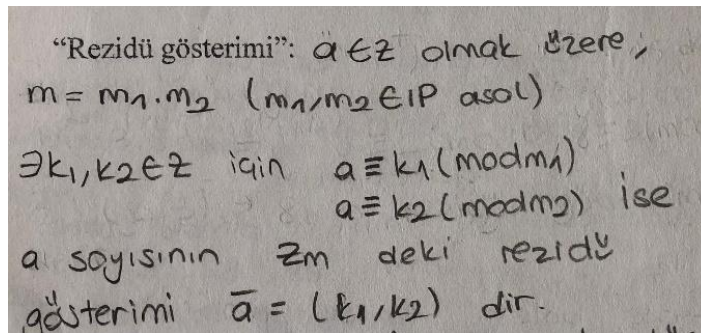 “Rezidü gösterimi”: a ∈ Z olmak üzere,
m = m₁.m₂ (m₁,m₂ ∈ IP asal)
∃k₁,k₂ ∈ Z için a ≡ k₁ (mod m₁)
a ≡ k₂ (mod m₂) ise
a sayısının Zm deki rezidü
gösterimi a̅ = (k₁,k₂) dir.